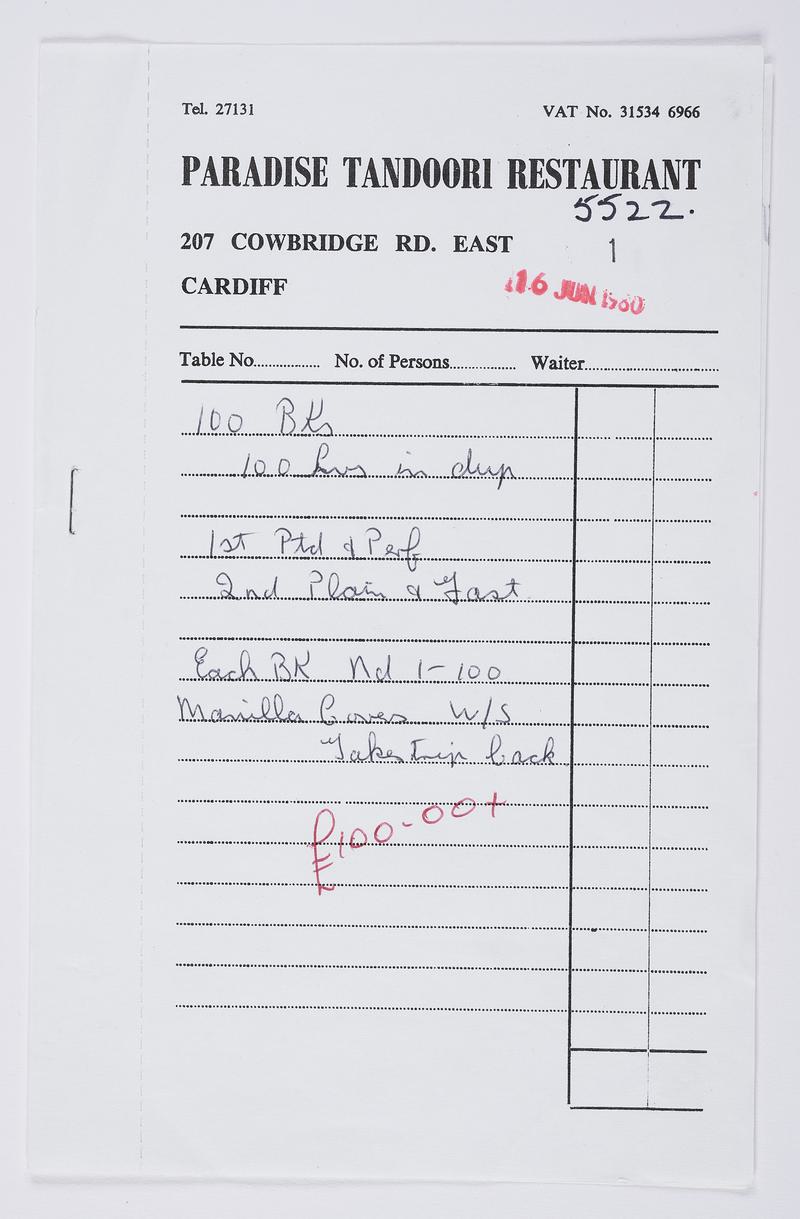 Tel. 27131 VAT No. 31534 6966
PARADISE TANDOORI RESTAURANT
5522.
207 COWBRIDGE RD. EAST 1
CARDIFF 16 JUN 1980
Table No. No. of Persons Waiter
100 BKs
100 lvs in dup
1st Ptd & Perf
2nd Plain & Fast
Each BK Nd 1-100
Manilla Covers W/S
Takes Trip back
£100-00+